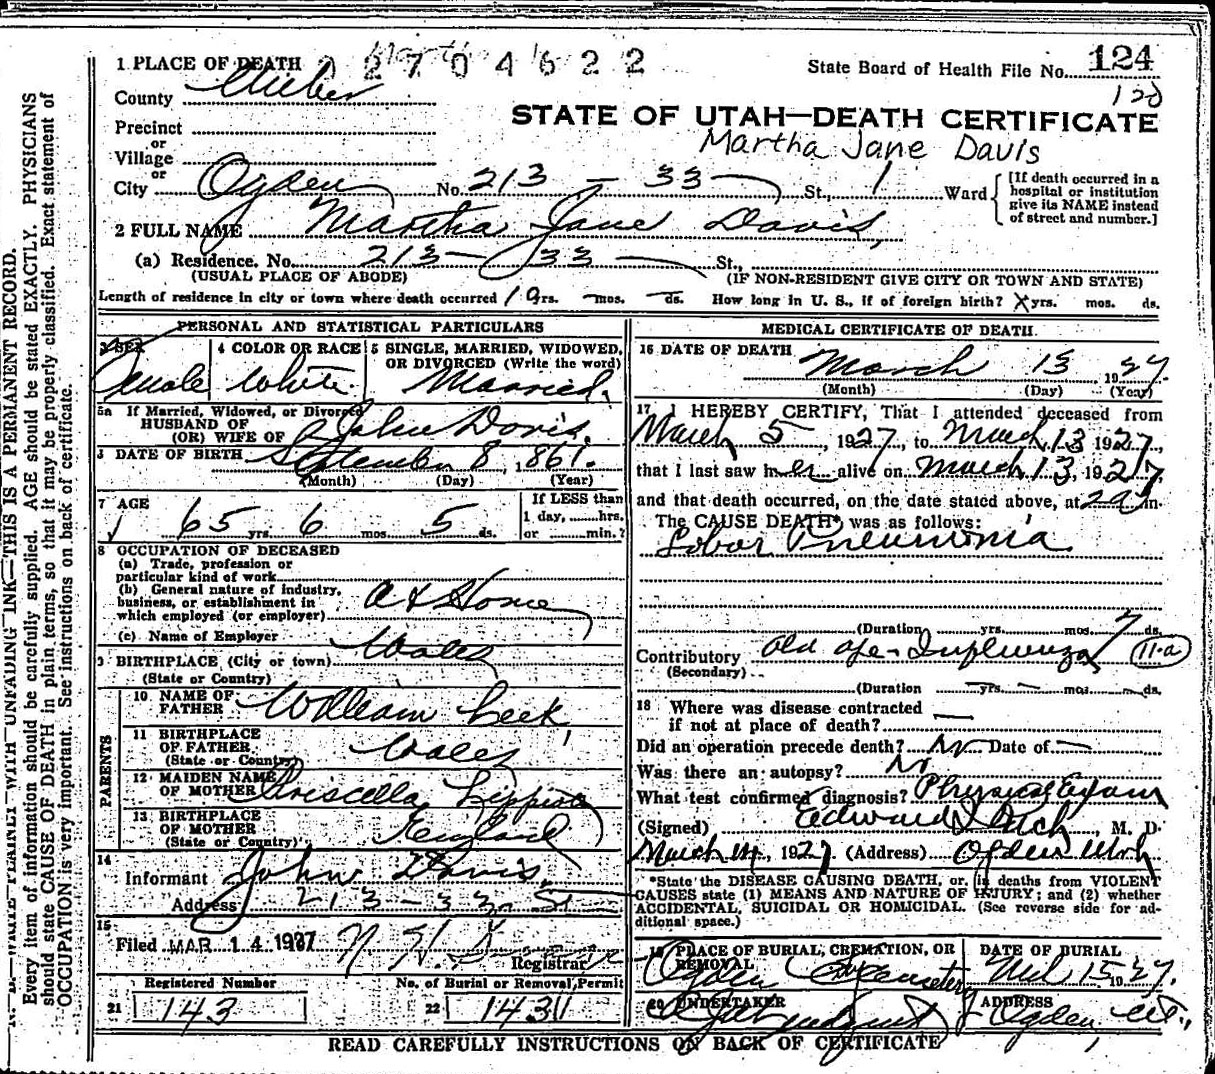 1 PLACE OF DEATH 2704622
State Board of Health File No. 124
County Weber
120
STATE OF UTAH—DEATH CERTIFICATE
Precinct
or
Martha Jane Davis
Village
or
City Ogden No. 213 - 33 St., 1 Ward
[If death occurred in a
hospital or institution
give its NAME instead
of street and number.]
2 FULL NAME Martha Jane Davis,
(a) Residence. No. 213 - 33 St.,
(USUAL PLACE OF ABODE) (IF NON-RESIDENT GIVE CITY OR TOWN AND STATE)
Length of residence in city or town where death occurred 19 yrs. — mos. — ds. How long in U. S., if of foreign birth? X yrs. mos. ds.
PERSONAL AND STATISTICAL PARTICULARS
3 SEX 4 COLOR OR RACE 5 SINGLE, MARRIED, WIDOWED,
OR DIVORCED (Write the word)
Female White. Married.
5a If Married, Widowed, or Divorced
HUSBAND OF
(OR) WIFE OF John Davis.
DATE OF BIRTH September 8, 1861.
(Month) (Day) (Year)
7 AGE
If LESS than
1 day, ......hrs.
or ......min.?
65 yrs. 6 mos. 5 ds.
8 OCCUPATION OF DECEASED
(a) Trade, profession or
particular kind of work
(b) General nature of industry,
business, or establishment in
which employed (or employer) At Home
(c) Name of Employer
9 BIRTHPLACE (City or town) Wales
(State or Country)
PARENTS
10 NAME OF
FATHER William Leek,
11 BIRTHPLACE
OF FATHER
(State or Country) Wales
12 MAIDEN NAME
OF MOTHER Priscilla
13 BIRTHPLACE
OF MOTHER
(State or Country) England
14
Informant John Davis,
Address 213 - 33 St
15
Filed MAR 14 1927 N. H.
Registrar
Registered Number No. of Burial or Removal Permit
21 143 22 1431
MEDICAL CERTIFICATE OF DEATH.
16 DATE OF DEATH
March 13, 1927
(Month) (Day) (Year)
17 I HEREBY CERTIFY, That I attended deceased from
March 5, 1927, to March 13 1927,
that I last saw her alive on March 13, 1927,
and that death occurred, on the date stated above, at 2 a m.
The CAUSE DEATH* was as follows:
Lobar Pneumonia
(Duration yrs. mos. 7 ds.
Contributory Old age - Influenza 11-a
(Secondary)
(Duration — yrs. — mos. — ds.
18 Where was disease contracted
if not at place of death? —
Did an operation precede death? No Date of —
Was there an autopsy? No
What test confirmed diagnosis? Physical Exam
(Signed) Edward I Rich, M. D.
March 14, 1927 (Address) Ogden Utah
*State the DISEASE CAUSING DEATH, or, in deaths from VIOLENT
CAUSES state (1) MEANS AND NATURE OF INJURY; and (2) whether
ACCIDENTAL, SUICIDAL OR HOMICIDAL. (See reverse side for ad-
ditional space.)
19 PLACE OF BURIAL, CREMATION, OR
REMOVAL
DATE OF BURIAL
Ogden City Cemetery Mch 15 1927.
20 UNDERTAKER ADDRESS
Lindquist Ogden, Ut.,
READ CAREFULLY INSTRUCTIONS ON BACK OF CERTIFICATE
WRITE PLAINLY WITH UNFADING INK—THIS IS A PERMANENT RECORD.
Every item of information should be carefully supplied. AGE should be stated EXACTLY. PHYSICIANS
should state CAUSE OF DEATH in plain terms, so that it may be properly classified. Exact statement of
OCCUPATION is very important. See instructions on back of certificate.